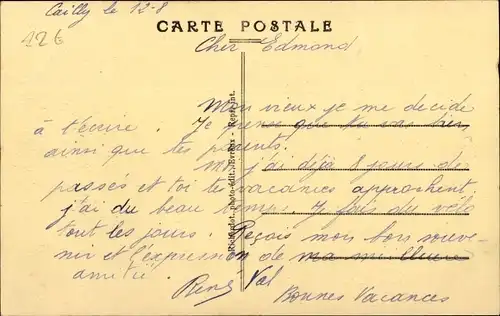 Cailly le 12-8
CARTE POSTALE
126
Cher Edmond
Mon vieux je me décide
à t'écrire. Je pense que tu vas bien
ainsi que tes parents.
Moi j'ai déjà 8 jours de
passés et toi tes vacances approchent.
j'ai du beau temps. Je fais du vélo
tout les jours. Reçois mon bon souve-
nir et l'expression de ma meilleure
amitié.
René Val
Bonnes Vacances
photo-édit., Evreux - Repr. int.